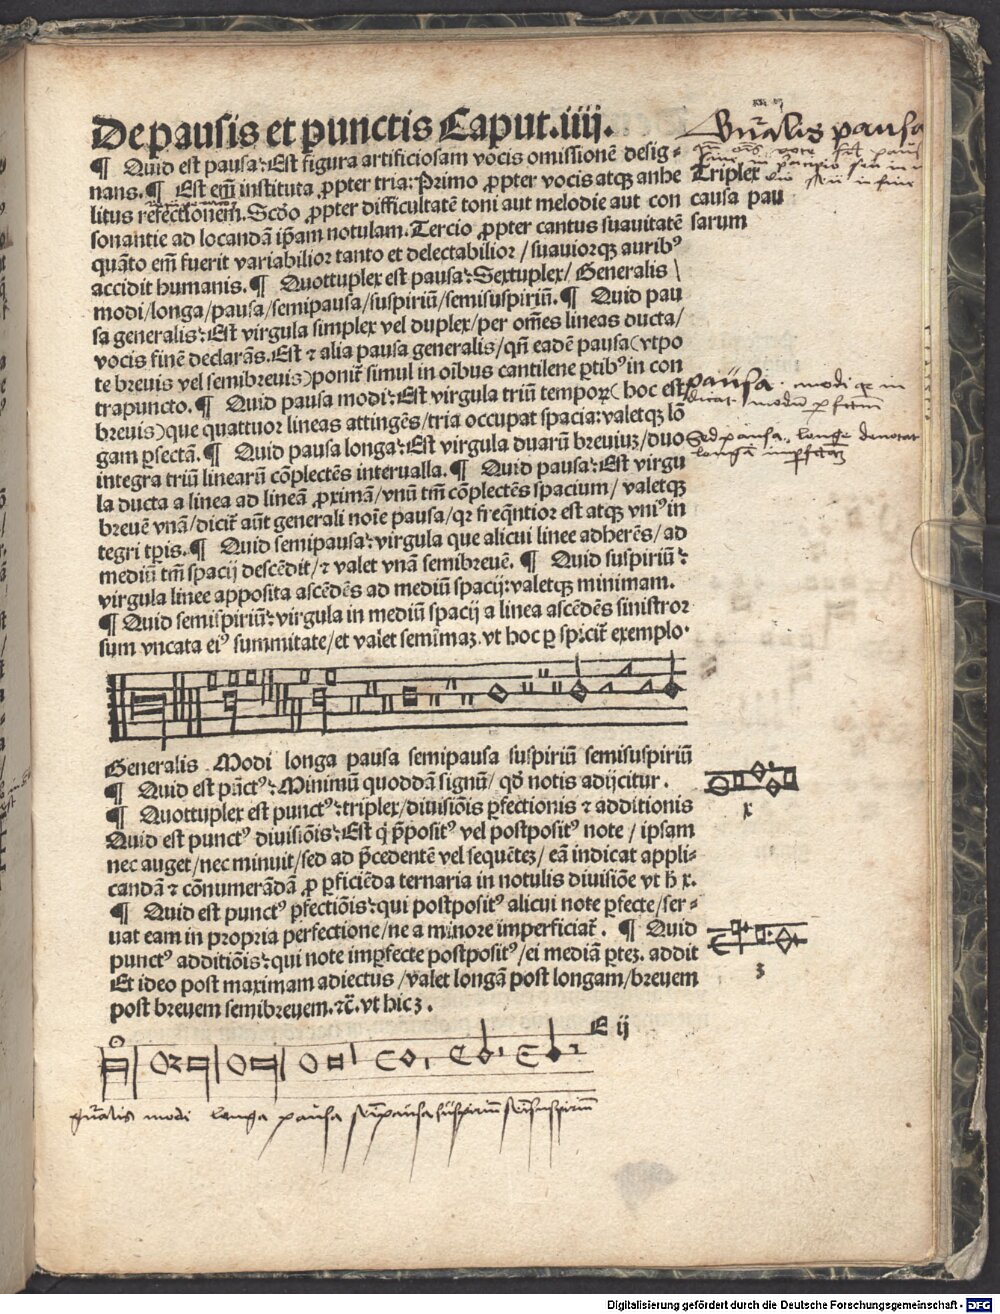 De pausis et punctis Caput.iiij.
¶ Quid est pausa: Est figura artificiosam vocis omissionē desig-
nans. ¶ Est em̄ instituta ꝓpter tria: Primo ꝓpter vocis atqꝫ anhe
litus refectionem. Scd̄o ꝓpter difficultatē toni aut melodie aut con
sonantie ad locandā ip̄am notulam. Tercio ꝓpter cantus suauitatē
quāto em̄ fuerit variabilior tanto et delectabilior / suauiorqꝫ auribꝰ
accidit humanis. ¶ Quottuplex est pausa: Sextuplex / Generalis \
modi/longa/pausa/semipausa/suspiriū/semisuspiriū. ¶ Quid pau
sa generalis: Est virgula simplex vel duplex/per om̄es lineas ducta/
vocis finē declarās. Est ⁊ alia pausa generalis/qn̄ eadē pausa (vtpo
te breuis vel semibreuis) ponit᷑ simul in oībus cantilene ꝑtibꝰ in con
trapuncto. ¶ Quid pausa modi: Est virgula triū tempoꝝ (hoc est
breuis) que quattuor lineas attingēs/tria occupat spacia: valetqꝫ lō
gam ꝑfectā. ¶ Quid pausa longa: Est virgula duarū breuiuꝫ/duo
integra triū linearū cōplectēs interualla. ¶ Quid pausa: Est virgu
la ducta a linea ad lineā ꝓximā/vnū tm̄ cōplectēs spacium / valetqꝫ
breuē vnā/dicit᷑ aūt generali noīe pausa/qꝛ freqn̄tior est atqꝫ vniꝰ in
tegri tꝑis. ¶ Quid semipausa: virgula que alicui linee adherēs/ad
mediū tm̄ spacij descēdit/⁊ valet vnā semibreuē. ¶ Quid suspiriū:
virgula linee apposita ascēdēs ad mediū spacij: valetqꝫ minimam.
¶ Quid semispiriū: virgula in mediū spacij a linea ascēdēs sinistror
sum vncata eiꝰ summitate/et valet semīmaꝫ. vt hoc ꝑspicit᷑ exemplo.
Triplex
causa pau
sarum
Gn̄ralis pausa
pausa modi
Sed pausa longe denotat
Generalis Modi longa pausa semipausa suspiriū semisuspiriū
¶ Quid est pūctꝰ: Minimū quoddā signū/ qd̄ notis adijcitur.
¶ Quottuplex est punctꝰ: triplex/diuisiōis ꝑfectionis ⁊ additionis
Quid est punctꝰ diuisiōis: Est q̄ p̄positꝰ vel postpositꝰ note / ipsam
nec auget/nec minuit/sed ad p̄cedentē vel sequēteꝫ/ eā indicat appli-
candā ⁊ cōnumerādā ꝓ ꝑficiēda ternaria in notulis diuisiōe vt h̄ x.
x
¶ Quid est punctꝰ ꝑfectiōis: qui postpositꝰ alicui note ꝑfecte/ser-
uat eam in propria perfectione/ne a minore imperficiat᷑. ¶ Quid
punctꝰ additiōis: qui note imꝑfecte postpositꝰ/ei mediā ꝑteꝫ. addit
Et ideo post maximam adiectus /valet longā post longam/breuem
post breuem semibreuem. ⁊c̄. vt hic ꝫ.
ꝫ
E ij
gn̄ralis modi longa pausa semipausa suspirium semisuspirium
Digitalisierung gefördert durch die Deutsche Forschungsgemeinschaft - DFG